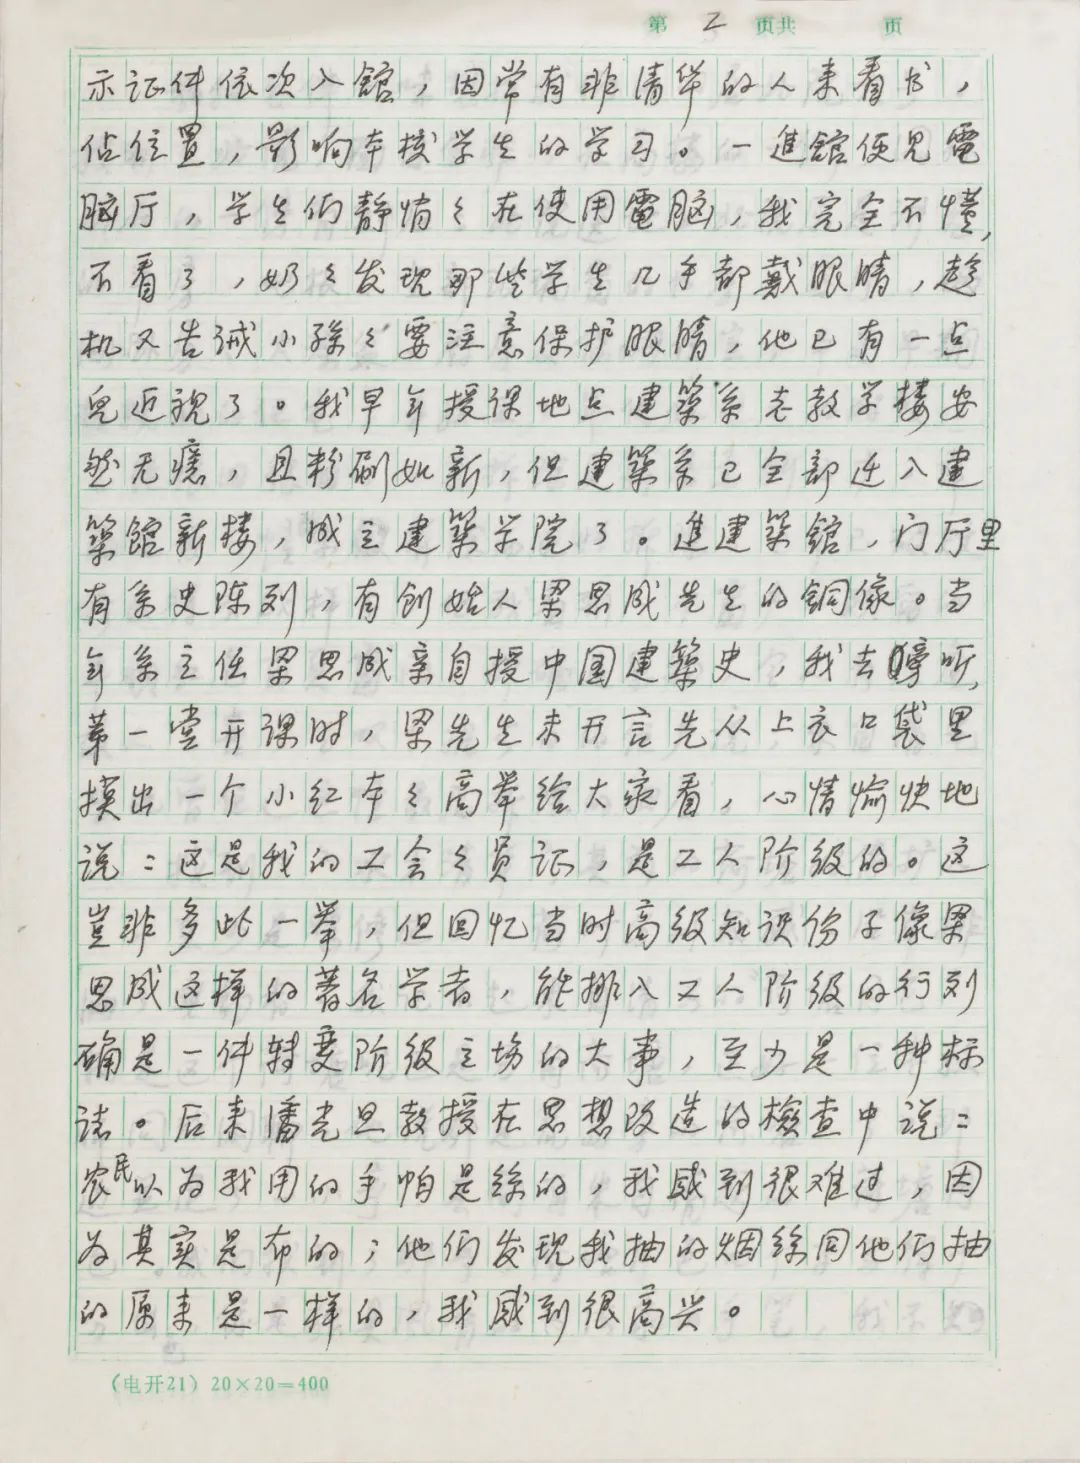 第 2 页共 页
示证件依次入館，因常有非清华的人来看书，
佔位置，影响本校学生的学习。一進館便见電
脑厅，学生们静悄々在使用電脑，我完全不懂，
不看了，奶々发现那些学生几乎都戴眼睛，趁
机又告诫小孫々要注意保护眼睛，他已有一点
兒近視了。我早年授课地点建築系老教学楼安
然无恙，且粉刷如新，但建築系已全部迁入建
築館新楼，成立建築学院了。進建築館，门厅里
有系史陈列，有创始人梁思成先生的銅像。当
年系主任梁思成亲自授中国建築史，我去旁听，
第一堂开课时，梁先生未开言先从上衣口袋里
摸出一个小红本々高举给大家看，心情愉快地
说：这是我的工会々员证，是工人阶级的。这
豈非多此一举，但回忆当时高级知识份子像梁
思成这样的著名学者，能排入工人阶级的行列
确是一件转变阶级立场的大事，至少是一种标
誌。后来潘光旦教授在思想改造的檢查中说：
农民以为我用的手帕是絲的，我感到很难过，因
为其实是布的；他们发现我抽的烟絲同他们抽
的原来是一样的，我感到很高兴。
（电开21）20×20＝400